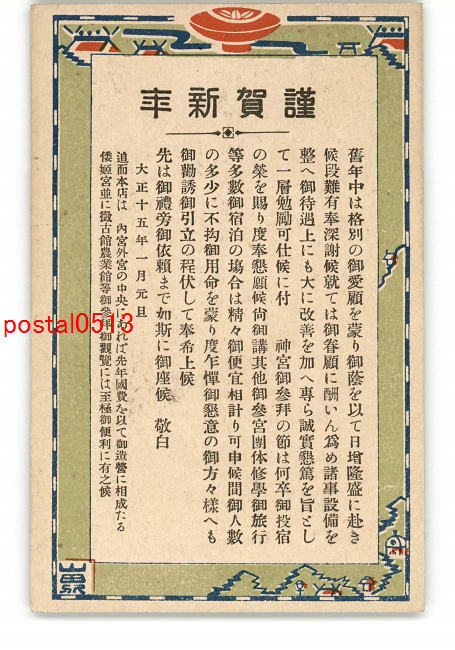 謹賀新年
舊年中は格別の御愛顧を蒙り御蔭を以て日增隆盛に赴き
候段難有奉深謝候就ては御眷顧に酬いん爲め諸事設備を
整へ御待遇上にも大に改善を加へ專ら誠實懇篤を旨とし
て一層勉勵可仕候に付 神宮御參拜の節は何卒御投宿
の榮を賜り度奉懇願候尙御講其他御參宮團体修學御旅行
等多數御宿泊の場合は精々御便宜相計り可申候間御人數
の多少に不拘御用命を蒙り度乍憚御懇意の御方々樣へも
御勸誘御引立の程伏して奉希上候
先は御禮旁御依賴まで如斯に御座候 敬白
大正十五年一月元旦
追而本店は 內宮外宮の中央にあれば先年國費を以て御造營に相成たる
倭姬宮並に徵古館農業館等御參拜御觀覽には至極御便利に有之候
postal0513